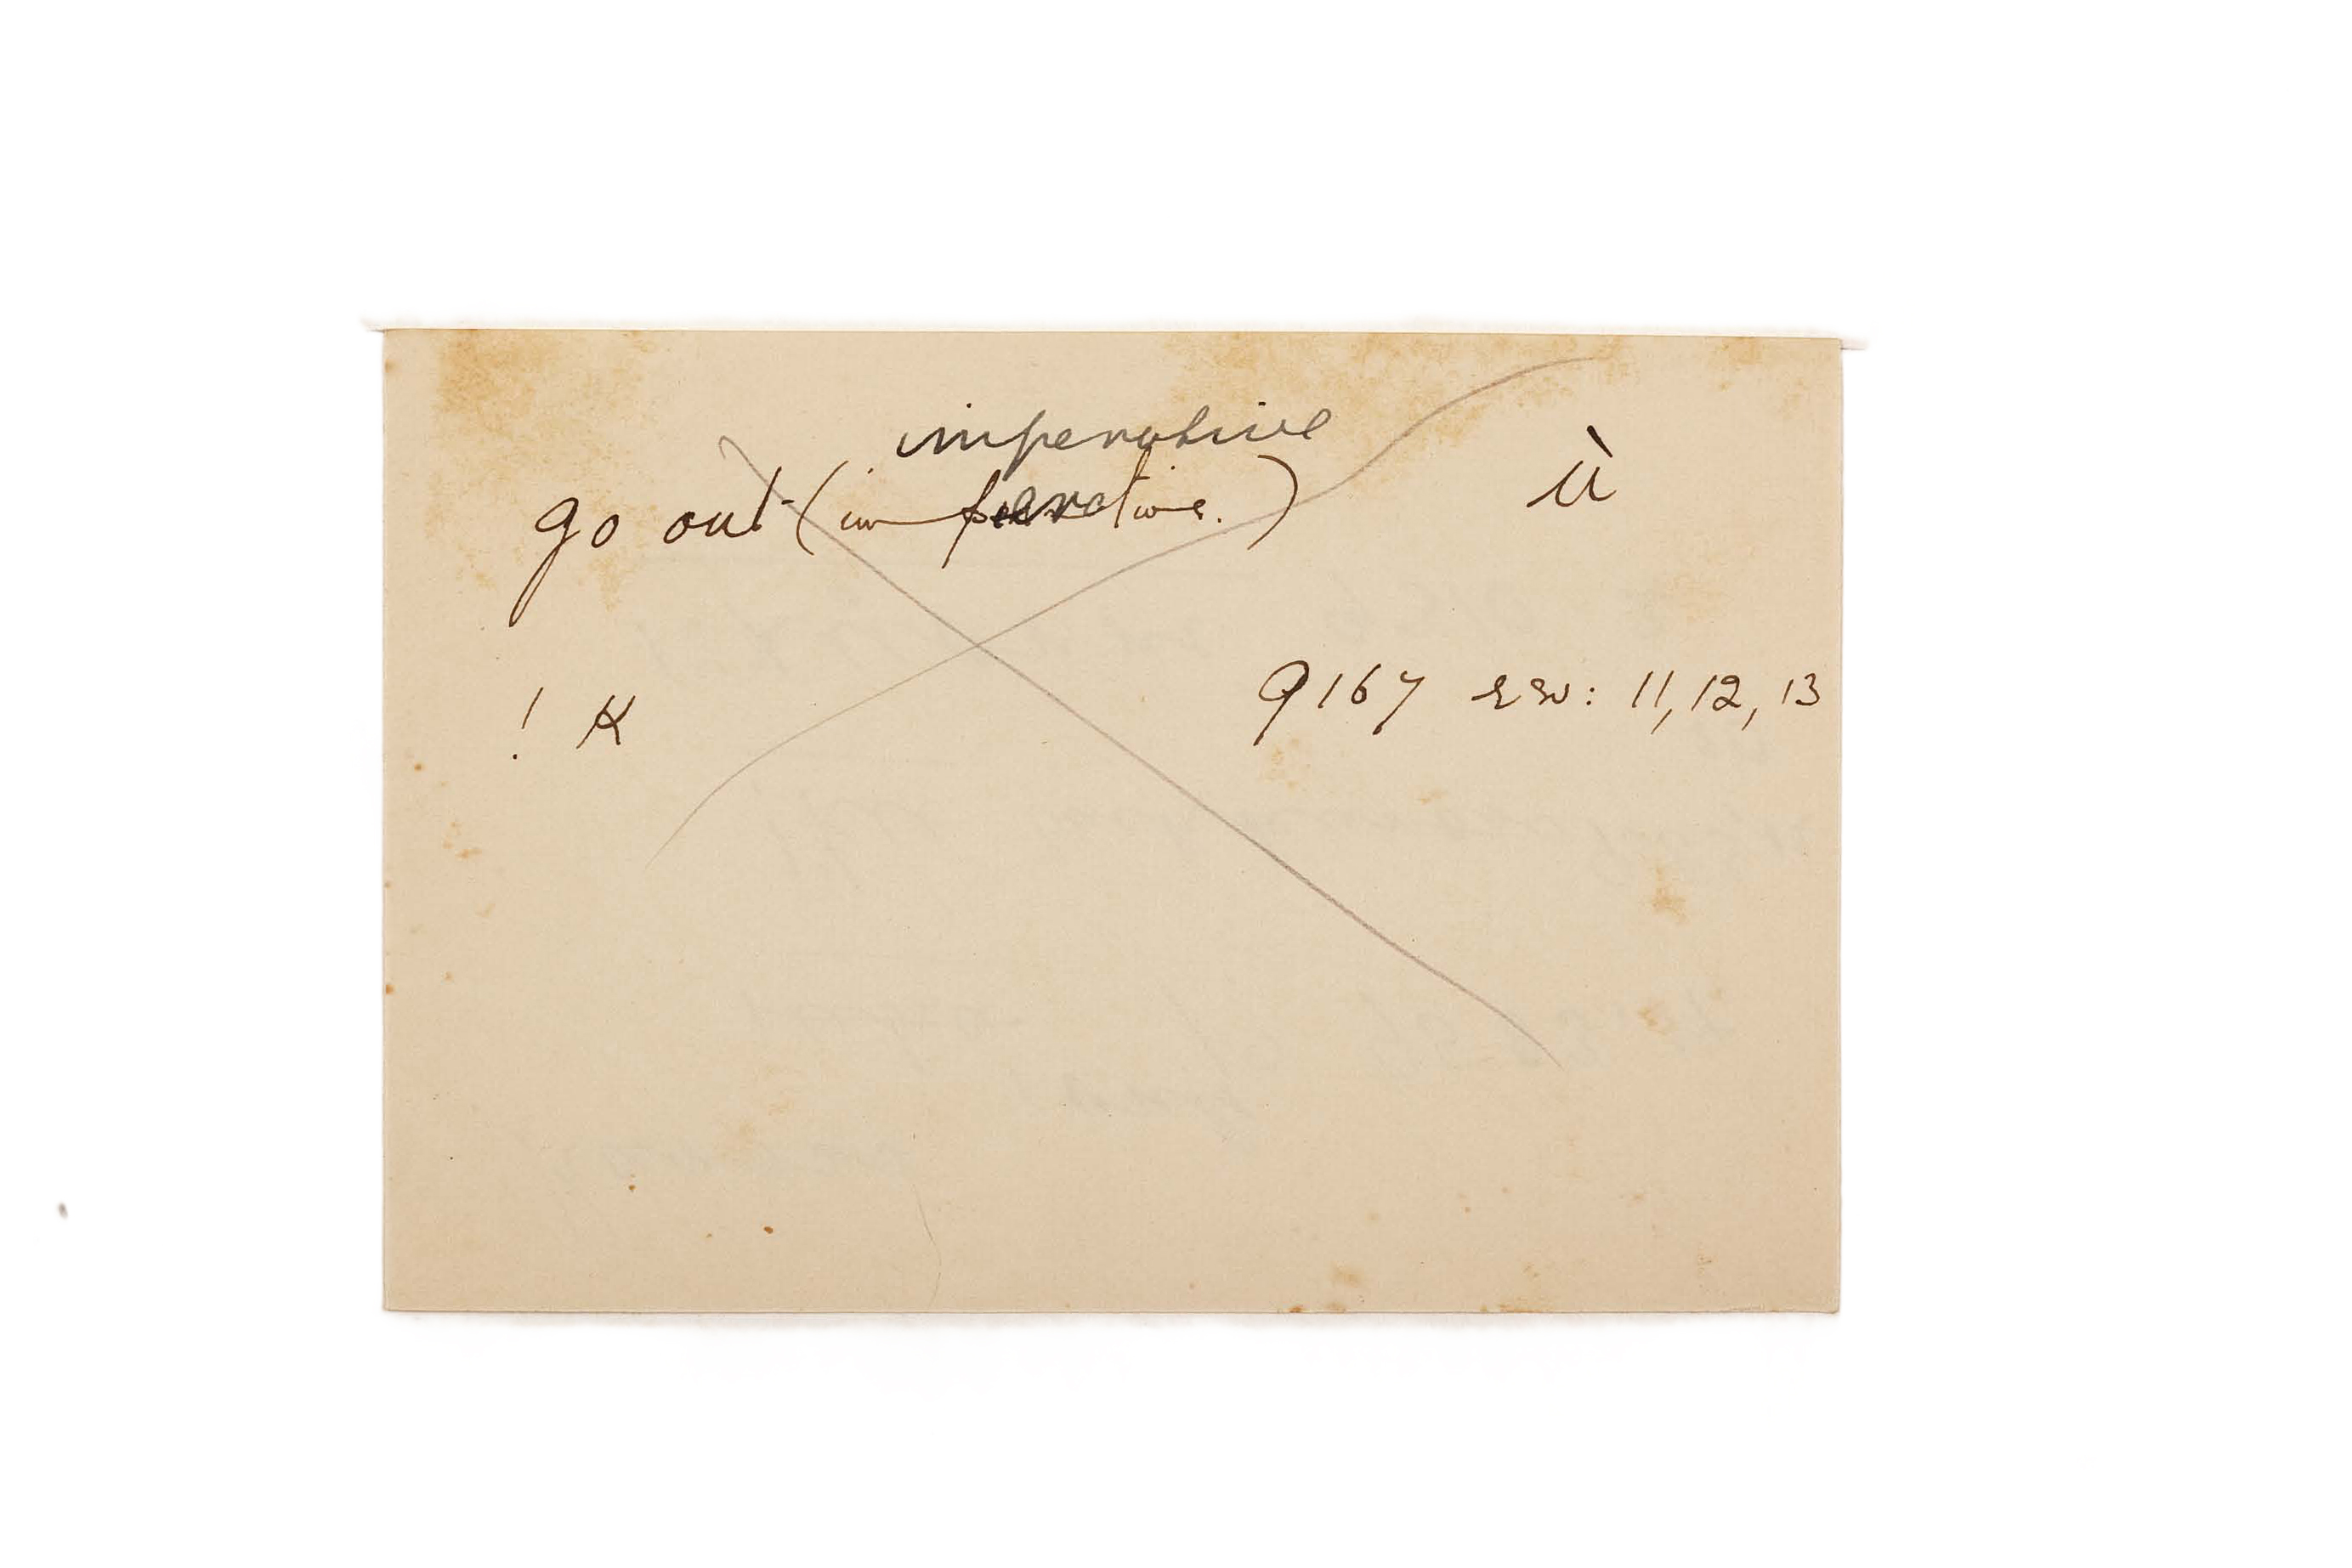 imperative
go out (imperative.) ù
! K 9167 rev: 11, 12, 13